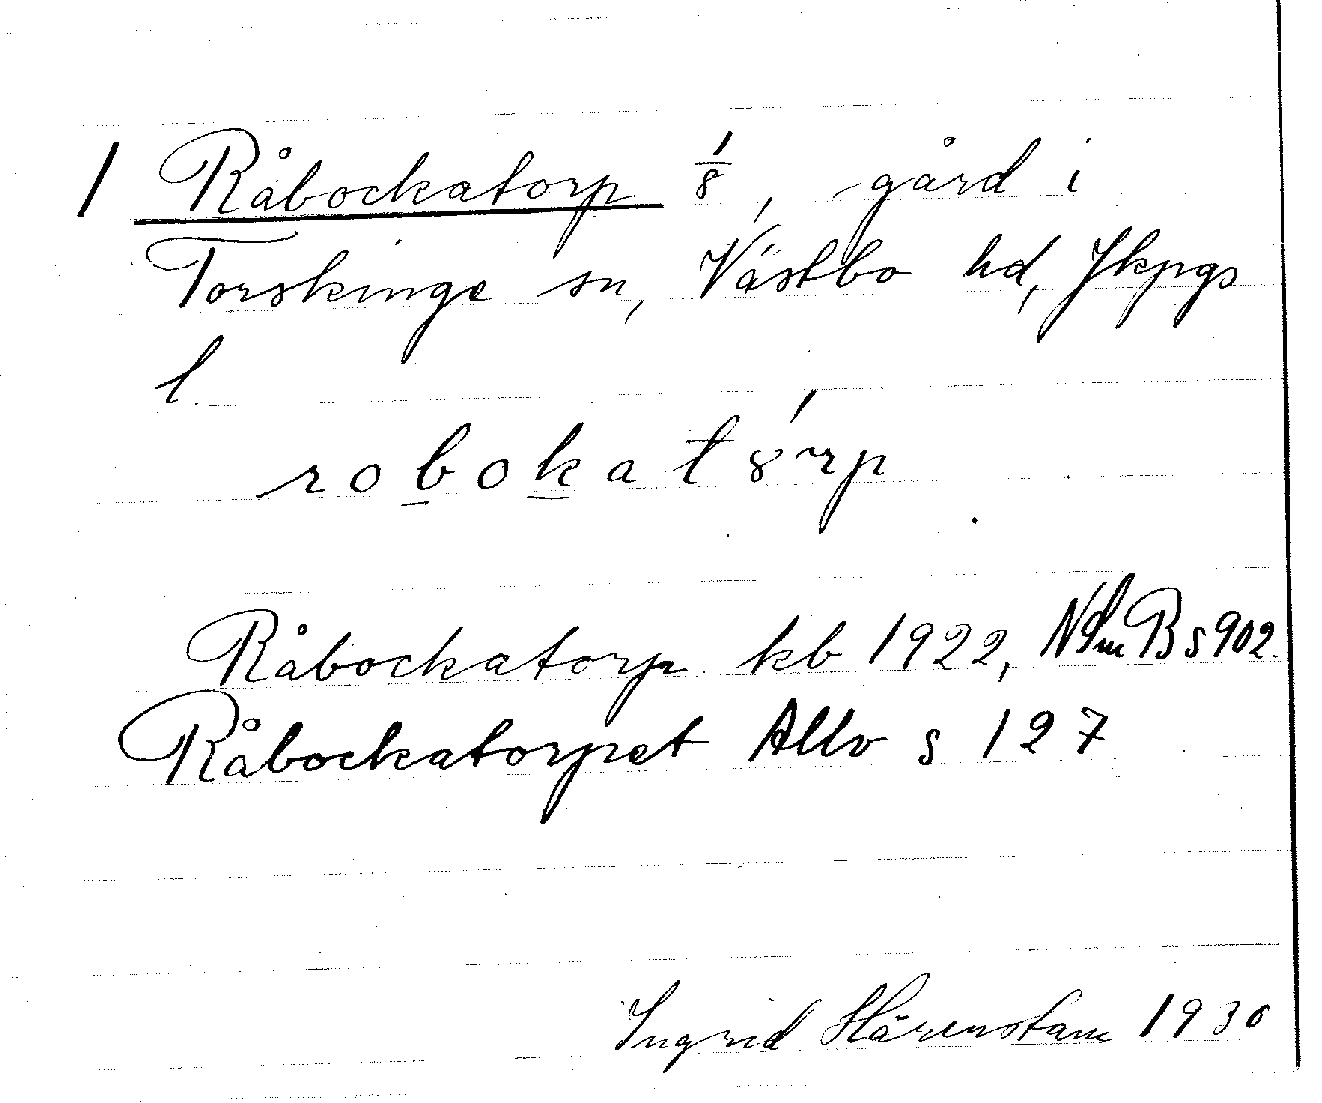 1 Råbockatorp 1/8, gård i
Torskinge sn, Västbo hd, Jkpgs
l
robokatórp
Råbockatorp kb 1922, NSmB s 902
Råbockatorpet Allv s 127
Ingrid Härenstam 1930